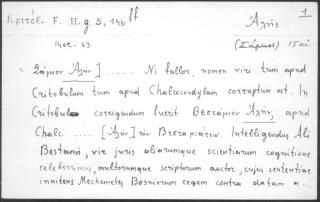 Κριτόβ. F. H. g. 5, 146 ff
Ἀλῆς
1
1402-63
(Σάμιος) 15 αἰ.
"Σάμιον Ἀλῆν] ........ Ni fallor, nomen viri tum apud
Critobulum tum apud Chalcocondylam corruptum est. In
Critobulo corrigendum fuerit Βεσσάμιον Ἀλῆν, apud
Chalc. ...... [Ἀλῆν] τὸν Intelligendus Ali
Bestami, vir juris aliarumque scientiarum cognitione
celeberrimus, multorumque scriptorum auctor, cujus sententiae
innitens Mechemetes Bosniorum regem contra datam a ...